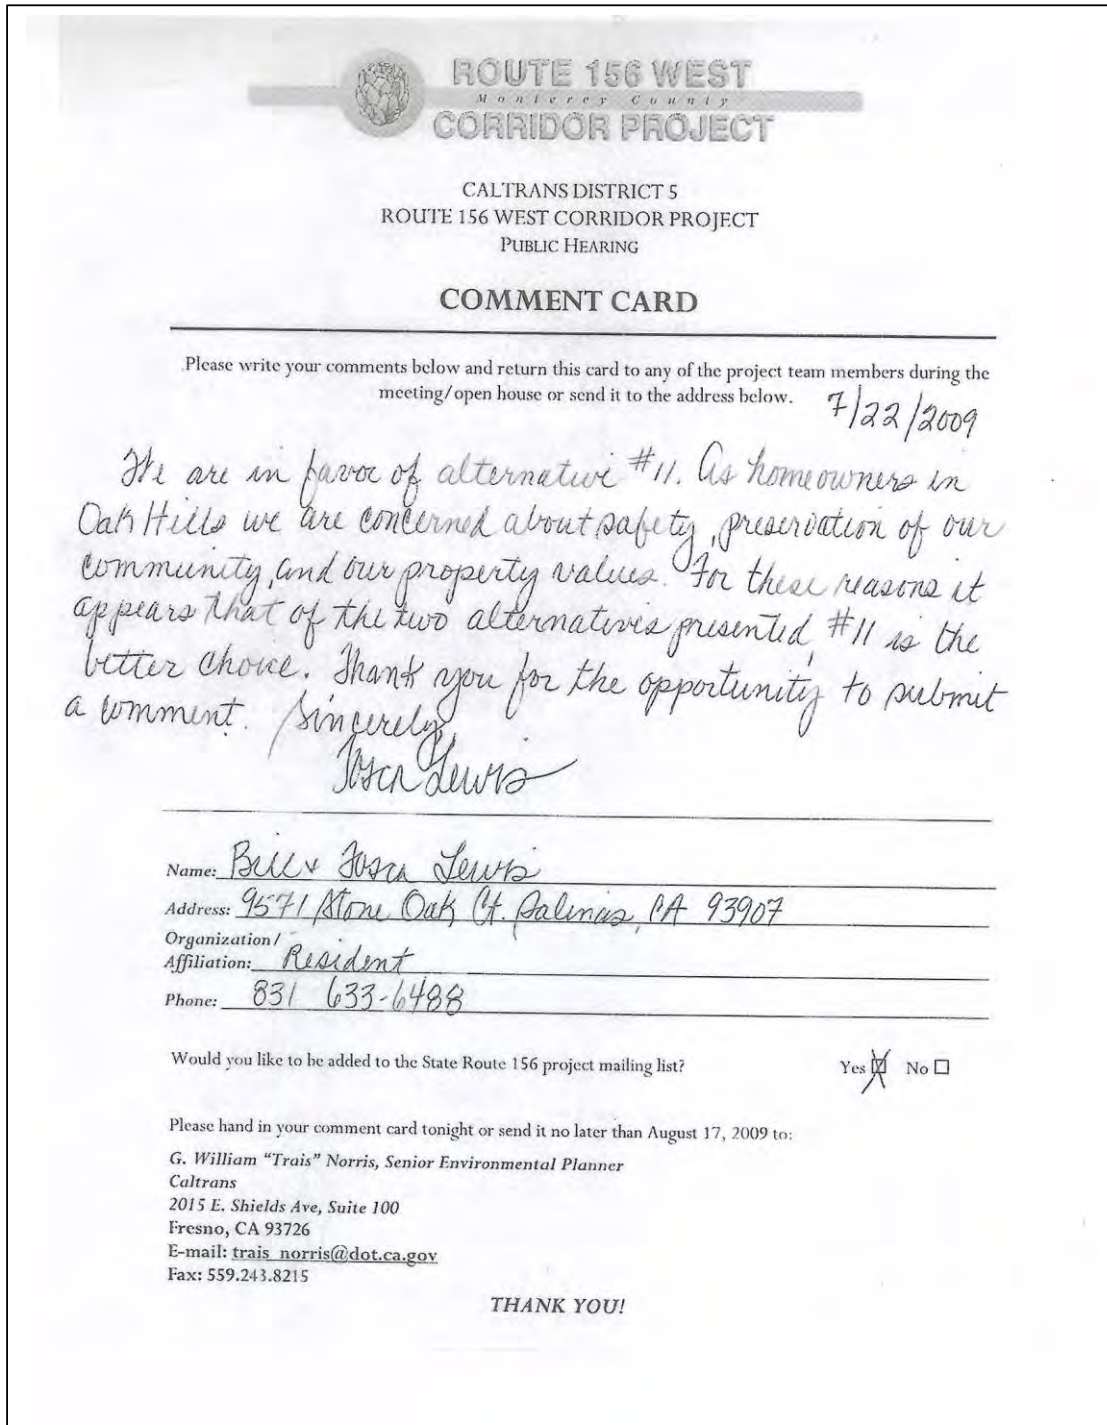 ROUTE 156 WEST
Monterey County
CORRIDOR PROJECT
CALTRANS DISTRICT 5
ROUTE 156 WEST CORRIDOR PROJECT
PUBLIC HEARING
COMMENT CARD
Please write your comments below and return this card to any of the project team members during the
meeting/open house or send it to the address below. 7/22/2009
We are in favor of alternative #11. As homeowners in
Oak Hills we are concerned about safety, preservation of our
community, and our property values. For these reasons it
appears that of the two alternatives presented, #11 is the
better choice. Thank you for the opportunity to submit
a comment. Sincerely,
Tosca Lewis
Name: Bill & Tosca Lewis
Address: 9571 Stone Oak Ct. Salinas, CA 93907
Organization/
Affiliation: Resident
Phone: 831 633-6488
Would you like to be added to the State Route 156 project mailing list? Yes No
Please hand in your comment card tonight or send it no later than August 17, 2009 to:
G. William "Trais" Norris, Senior Environmental Planner
Caltrans
2015 E. Shields Ave, Suite 100
Fresno, CA 93726
E-mail: trais_norris@dot.ca.gov
Fax: 559.243.8215
THANK YOU!